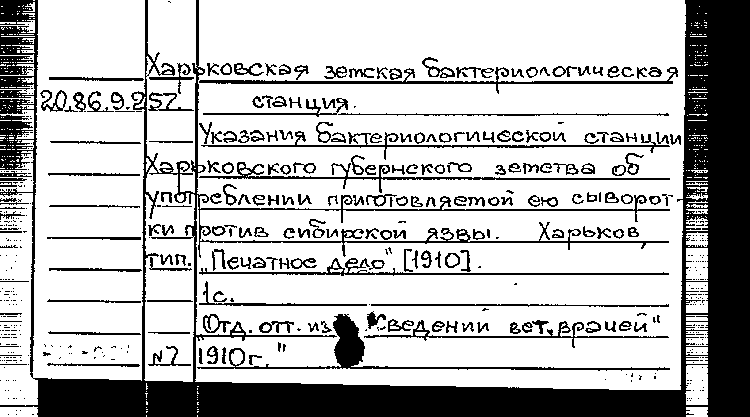 Харьковская земская бактериологическая
20.86.9.257. станция.
Указания бактериологической станции
Харьковского губернского земства об
употреблении приготовляемой ею сыворот-
ки против сибирской язвы. Харьков,
тип. "Печатное дело", [1910].
1с.
"Отд. отт. из "Сведений вет. врачей"
№7 1910г."